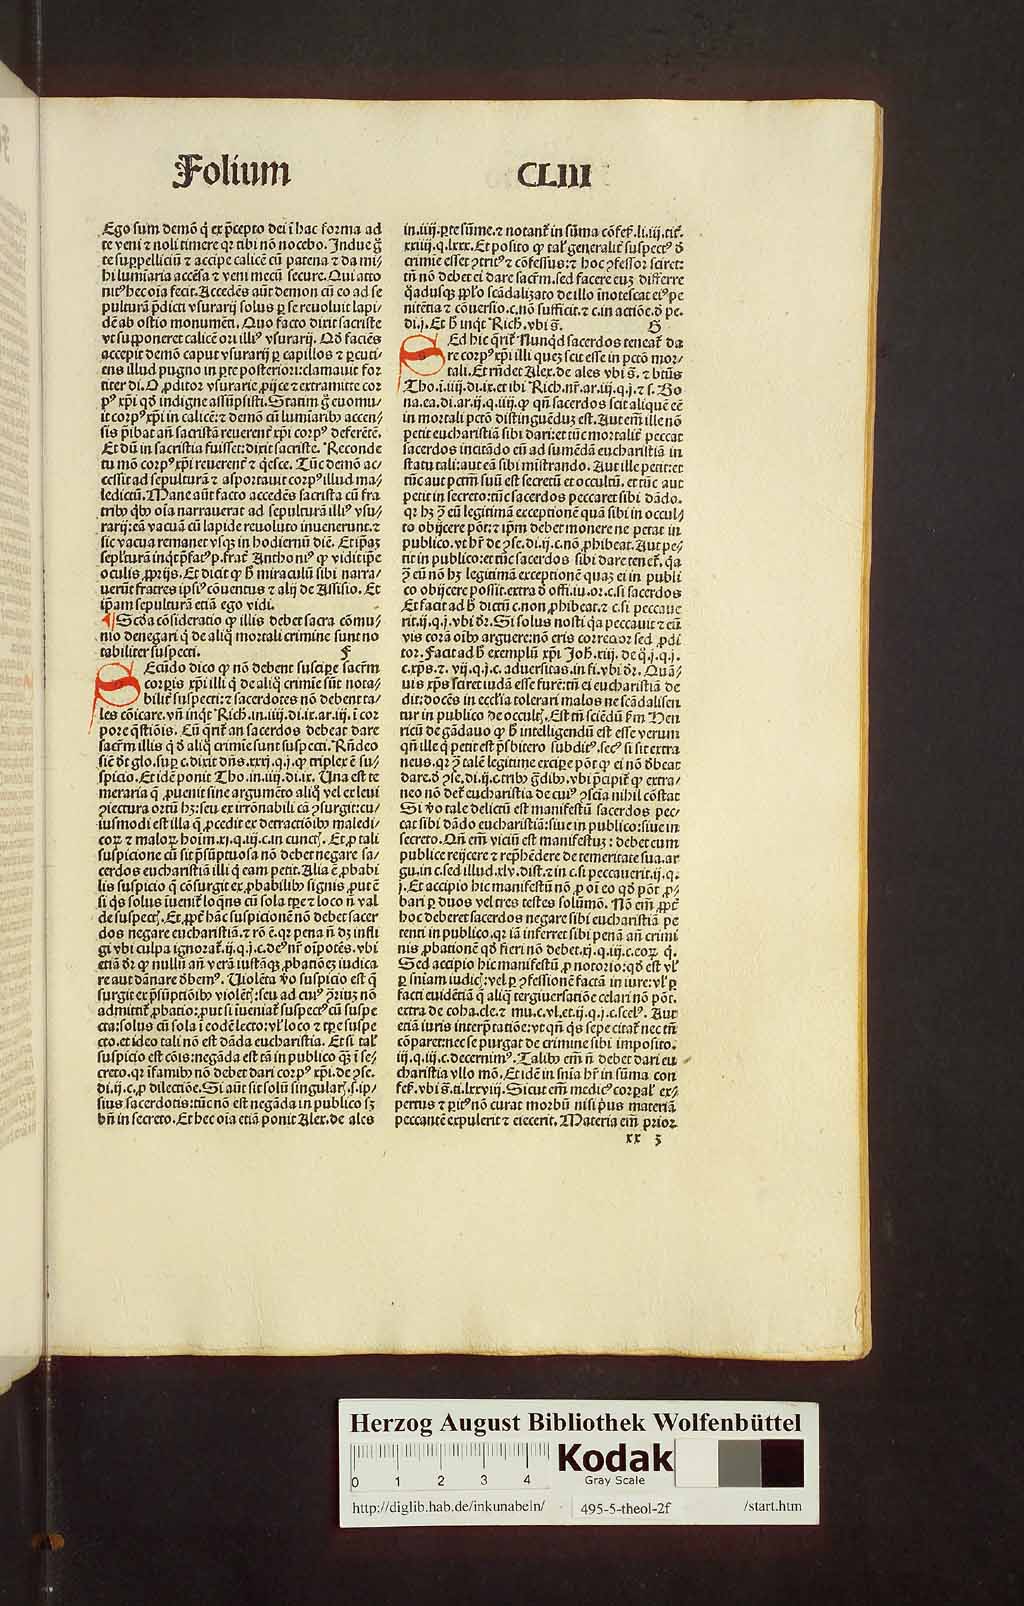 Folium CLIII
Ego sum demō q̄ ex p̄cepto dei ī hac forma ad
te veni ⁊ noli timere qꝛ tibi nō nocebo. Indue g̊
te suppelliciū ⁊ accipe calicē cū patena ⁊ da mi⸗
hi lumīaria accēsa ⁊ veni mecū secure. Qui atto
nitꝰ hec oīa fecit. Accedēs aūt demon cū eo ad se
pulturā p̄dicti vsurarij solus ꝑ se reuoluit lapi⸗
dē ab ostio monumēti. Quo facto dixit sacriste
vt supponeret calicē ori illiꝰ vsurarij. Qd̄ faciēs
accepit demō caput vsurarij ꝑ capillos ⁊ ꝑcuti⸗
ens illud pugno in ꝑte posteriori: clamauit for
titer di. O ꝓditor vsurarie ꝓijce ⁊ extramitte cor
pꝰ xp̄i qd̄ indigne assūpsisti. Statim g̊ euomu⸗
it corpꝰ xp̄i in calicē: ⁊ demō cū lumiarib⁹ accen⸗
sis p̄ibat añ sacristā reuerent̄ xp̄i corpꝰ deferētē.
Et dū in sacristia fuisset: dixit sacriste. Reconde
tu mō corpꝰ xp̄i reuerent̄ ⁊ q̇esce. Tūc demō ac⸗
cessit ad sepulturā ⁊ asportauit corpꝰ illud ma⸗
ledictū. Mane aūt facto accedēs sacrista cū fra
trib⁹ q̇b⁹ oīa narrauerat ad sepulturā illiꝰ vsu⸗
rarij: eā vacuā cū lapide reuoluto inuenerunt. ⁊
sic vacua remanet vsq̄ in hodiernū diē. Et ip̄az
sepl̄turā inq̇t p̄fatꝰ p. frat̄ Anthoniꝰ ꝙ vidit ip̄e
oculis ꝓprijs. Et dicit ꝙ h̄ miraculū sibi narra⸗
uerūt fratres ipsiꝰ cōuentus ⁊ alij de Assisio. Et
ip̄am sepulturā etiā ego vidi.
¶ Scd̄a cōsideratio ꝙ illis debet sacra cōmu⸗
nio denegari q̇ de aliq̄ mortali crimine sunt no
tabiliter suspecti. F
SEcūdo dico ꝙ nō debent suscipe sacr̄m
corpīs xp̄i illi q̇ de aliq̄ crimīe sūt nota⸗
bilit̄ suspecti: ⁊ sacerdotes nō debent ta⸗
les cōicare. vñ inq̇t Rich. in. iiij. di. ix. ar. iij. ī cor
pore q̄stiōis. Cū q̄rit̄ an sacerdos debeat dare
sacr̄m illis q̇ d̄ aliq̄ crimīe sunt suspecti. Rn̄deo
sic̄ dt̄ glo. suꝑ c. dixit dñs. xxxij. q. j. ꝙ triplex ē su⸗
spicio. Et idē ponit Tho. in. iiij. di. ix. Una est te
meraria q̄ ꝓuenit sine argumēto aliq̄ vel ex leui
ꝯiectura ortū hꝫ: seu ex irrōnabili cā ꝯsurgit: cu⸗
iusmodi est illa q̄ ꝓcedit ex detractiōib⁹ maledi⸗
coꝝ ⁊ maloꝝ hoīm. xj. q. iij. c. in cunct̄. Et ꝓ tali
suspicione cū sit p̄sūptuosa nō debet negare sa⸗
cerdos eucharistiā illi q̇ eam petit. Alia ē ꝓbabi
lis suspicio q̄ cōsurgit ex ꝓbabilib⁹ signis ꝓut ē
si q̇s solus iueniat̄ loqn̄s cū sola tꝑe ⁊ loco ñ val
de suspect̄. Et ꝓpt̄ hāc suspicionē nō debet sacer
dos negare eucharistiā. ⁊ rō ē. qꝛ pena ñ dꝫ infli
gi vbi culpa ignorat̄. ij. q. j. c. deꝰ nr̄ oīpotēs. vbi
etiā dr̄ ꝙ nullū añ verā iustāqꝫ ꝓbationē iudica
re aut dānare debemꝰ. Uiolēta v̊o suspicio est q̄
surgit ex p̄sūptiōib⁹ violent̄: seu ad cuiꝰ ꝯriuz nō
admittit̄ ꝓbatio: put si iueniat̄ suspectꝰ cū suspe
cta: solus cū sola ī eodē lecto: vl̄ loco ⁊ tꝑe suspe
cto. et ideo tali nō est dāda eucharistia. Et si tal̄
suspicio est cōis: negāda est tā in publico q̄ꝫ ī se⸗
creto. qꝛ īfamib⁹ nō debet dari corpꝰ xp̄i. de ꝯse.
di. ij. c. ꝓ dilectiōe. Si aūt sit solū singular̄. s. ip⸗
sius sacerdotis: tūc nō est negāda in publico sꝫ
bñ in secreto. Et hec oīa etiā ponit Alex. de ales
in. iiij. ꝑte sūme. ⁊ notant̄ in sūma cōfes̄. li. iij. tit̄.
xxiiij. q. lxx. Et posito ꝙ tal̄ generalit̄ suspectꝰ d̄
crimīe esset ꝯtritꝰ ⁊ cōfessus: ⁊ hoc ꝯfessor sciret:
tñ nō debet ei dare sacr̄m. sed facere euꝫ differre
q̄adusqꝫ ppl̄o scādalizato de illo inotescat eiꝰ pe
nitētia ⁊ cōuersio. c. nō sufficit. ⁊ c. in actiōe. d̄ pe.
di. j. Et h̄ inq̇t Rich. vbi s̄. G
SEd hic q̄rit̄ Nunq̇d sacerdos teneat̄ da
re corpꝰ xp̄i illi quez scit esse in pctō mor⸗
tali. Et rn̄det Alex. de ales vbi s̄. ⁊ btūs
Tho. i. iiij. di. ix. et ibi Rich. nr̄. ar. iij. q. j. ⁊ s. Bo
na. ea. di. ar. ij. q. iiij. ꝙ qn̄ sacerdos scit aliquē eē
in mortali pctō distinguēduz est. Aut em̄ ille nō
petit eucharistiā sibi dari: et tūc mortalit̄ peccat
sacerdos incitādo eū ad sumēdā eucharistiā in
statu tali: aut eā sibi mīstrando. Aut ille petit: et
tūc aut pctm̄ suū est secretū et occultū. et tūc aut
petit in secreto: tūc sacerdos peccaret sibi dādo.
qꝛ hꝫ ꝯ eū legitimā exceptionē quā sibi in occul⸗
to obijcere pōt: ⁊ ip̄m debet monere ne petat in
publico. vt hr̄ de ꝯse. di. ij. c. nō ꝓhibeat. Aut pe⸗
tit in publico: et tūc sacerdos sibi dare tenet̄. q̇a
ꝯ eū nō hꝫ legitimā exceptionē quaz ei in publi
co obijcere possit. extra d̄ offi. iu. or. c. si sacerdos
Et facit ad h̄ dictū c. non ꝓhibeat. ⁊ c. si peccaue
rit. ij. q. j. vbi dr̄. Si solus nosti q̇a peccauit ⁊ eū
vis corā oīb⁹ arguere: nō eris corrector sed ꝓdi
tor. Facit ad h̄ exemplū xp̄i Joh. xiij. de q̄. j. q. j.
c. xp̄s. ⁊. vij. q. j. c. aduersitas. in fi. vbi dr̄. Quā⸗
uis xp̄s sciret iudā esse furē: tñ ei eucharistiā de
dit: docēs in eccl̄ia tolerari malos ne scādalisen
tur in publico de occult̄. Est tñ sciēdū ẜm Hen
ricū de gādauo ꝙ h̄ intelligendū est esse verum
qn̄ ille q̇ petit est p̄sbitero subditꝰ. secꝰ si sit extra
neus. qꝛ ꝯ talē legitime excipere pōt ꝙ ei nō d̄beat
dare. d̄ ꝯse. di. ij. c. trib⁹ g̊dib⁹. vbi p̄cipit̄ ꝙ extra⸗
neo nō det̄ eucharistia de cuiꝰ ꝯscia nihil cōstat
Si v̊o tale delictū est manifestū sacerdos pec⸗
cat sibi dādo eucharistiā: siue in publico: siue in
secreto. Qn̄ em̄ viciū est manifestuꝫ: debet eum
publice reijcere ⁊ rep̄hēdere de temeritate sua. ar
gu. in c. sed illud. xlv. dist. ⁊ in c. si peccauerit. ij. q.
j. Et accipio hic manifestū nō ꝓ oī eo qd̄ pōt ꝓ⸗
bari ꝑ duos vel tres testes solūmō. Nō em̄ ꝓpt̄
hoc deberet sacerdos negare sibi eucharistiā pe
tenti in publico. qꝛ iā inferret sibi penā añ crimi
nis ꝓbationē qd̄ fieri nō debet. xj. q. iij. c. eoꝝ. q̇.
Sed accipio hic manifestū ꝓ notorio: qd̄ est vl̄
ꝑ sniam iudic̄: vel ꝑ ꝯfessionē factā in iure: vl̄ ꝑ
facti euidētiā q̄ aliq̄ tergiuersatiōe celari nō pōt.
extra de coha. cle. ⁊ mu. c. vl. et. ij. q. j. c. scelꝰ. Aut
etiā iuris interp̄tatiōe: vt qn̄ q̇s sepe citat̄ nec tñ
cōparet: nec se purgat de crimine sibi imposito.
iij. q. iij. c. decernimꝰ. Talib⁹ em̄ ñ debet dari eu
charistia vllo mō. Et idē in snīa hr̄ in sūma con
fes̄. vbi s̄. ti. lxxviij. Sicut em̄ medicꝰ corꝑal̄ ex⸗
pertus ⁊ peritꝰ nō curat morbū nisi p̄us materiā
peccantē expulerit ⁊ eiecerit. Materia em̄ prior
xx 3
Herzog August Bibliothek Wolfenbüttel
0 1 2 3 4
Kodak
Gray Scale
http://diglib.hab.de/inkunabeln/ 495-5-theol-2f /start.htm